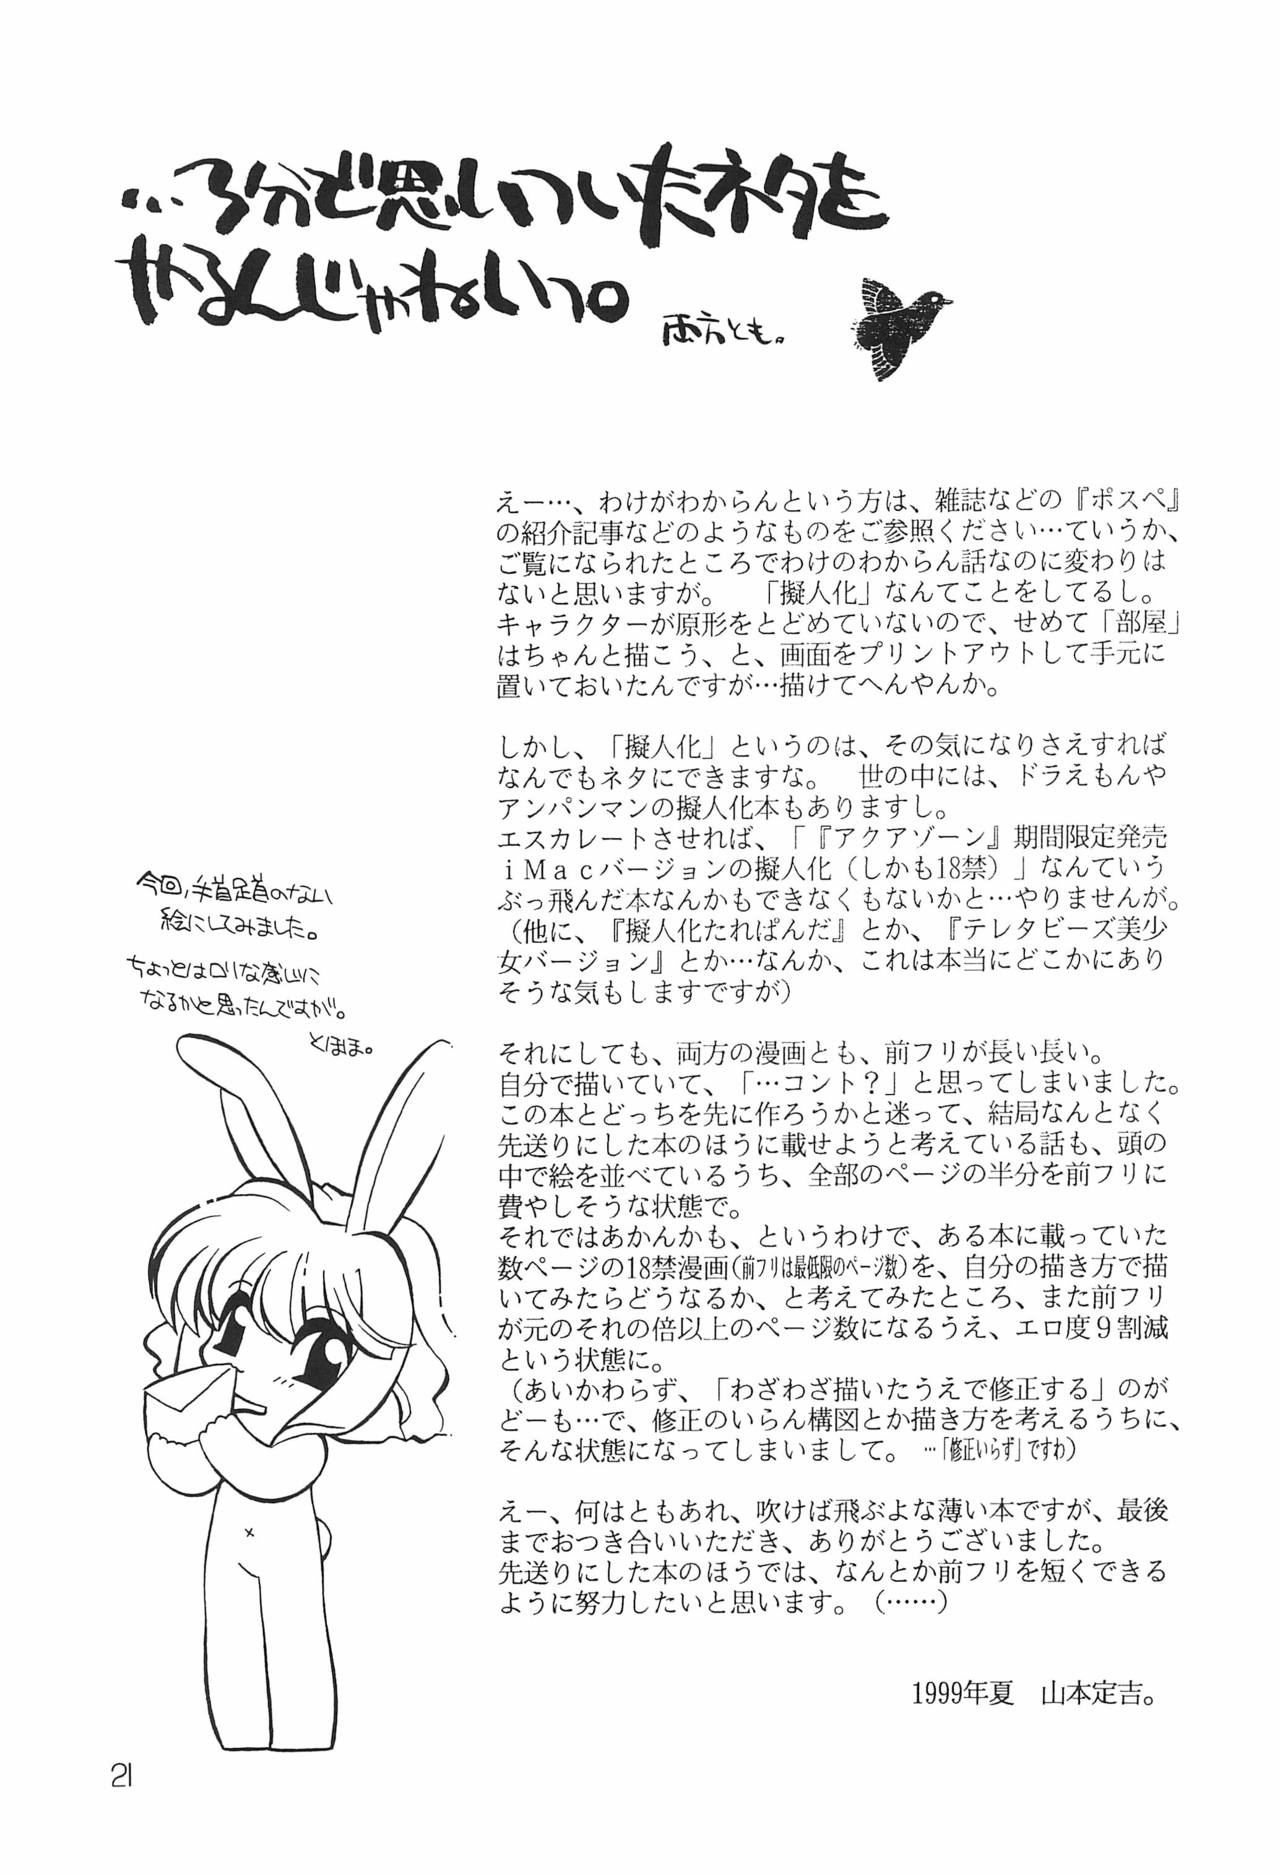 …3分で思いついたネタを
やるんじゃねいっ。
両方とも。
えー…、わけがわからんという方は、雑誌などの『ポスペ』
の紹介記事などのようなものをご参照ください…ていうか、
ご覧になられたところでわけのわからん話なのに変わりは
ないと思いますが。　「擬人化」なんてことをしてるし。
キャラクターが原形をとどめていないので、せめて「部屋」
はちゃんと描こう、と、画面をプリントアウトして手元に
置いておいたんですが…描けてへんやんか。
しかし、「擬人化」というのは、その気になりさえすれば
なんでもネタにできますな。　世の中には、ドラえもんや
アンパンマンの擬人化本もありますし。
エスカレートさせれば、「『アクアゾーン』期間限定発売
ｉＭａｃバージョンの擬人化（しかも18禁）」なんていう
ぶっ飛んだ本なんかもできなくもないかと…やりませんが。
（他に、『擬人化たれぱんだ』とか、『テレタビーズ美少
女バージョン』とか…なんか、これは本当にどこかにあり
そうな気もしますですが）
それにしても、両方の漫画とも、前フリが長い長い。
自分で描いていて、「…コント？」と思ってしまいました。
この本とどっちを先に作ろうかと迷って、結局なんとなく
先送りにした本のほうに載せようと考えている話も、頭の
中で絵を並べているうち、全部のページの半分を前フリに
費やしそうな状態で。
それではあかんかも、というわけで、ある本に載っていた
数ページの18禁漫画(前フリは最低限のページ数)を、自分の描き方で描
いてみたらどうなるか、と考えてみたところ、また前フリ
が元のそれの倍以上のページ数になるうえ、エロ度９割減
という状態に。
（あいかわらず、「わざわざ描いたうえで修正する」のが
どーも…で、修正のいらん構図とか描き方を考えるうちに、
そんな状態になってしまいまして。　…「修正いらず」ですわ）
えー、何はともあれ、吹けば飛ぶよな薄い本ですが、最後
までおつき合いいただき、ありがとうございました。
先送りにした本のほうでは、なんとか前フリを短くできる
ように努力したいと思います。（……）
1999年夏　山本定吉。
今回、手首足首のない
絵にしてみました。
ちょっとはロリな感じに
なるかと思ったんですが。
とほほ。
21